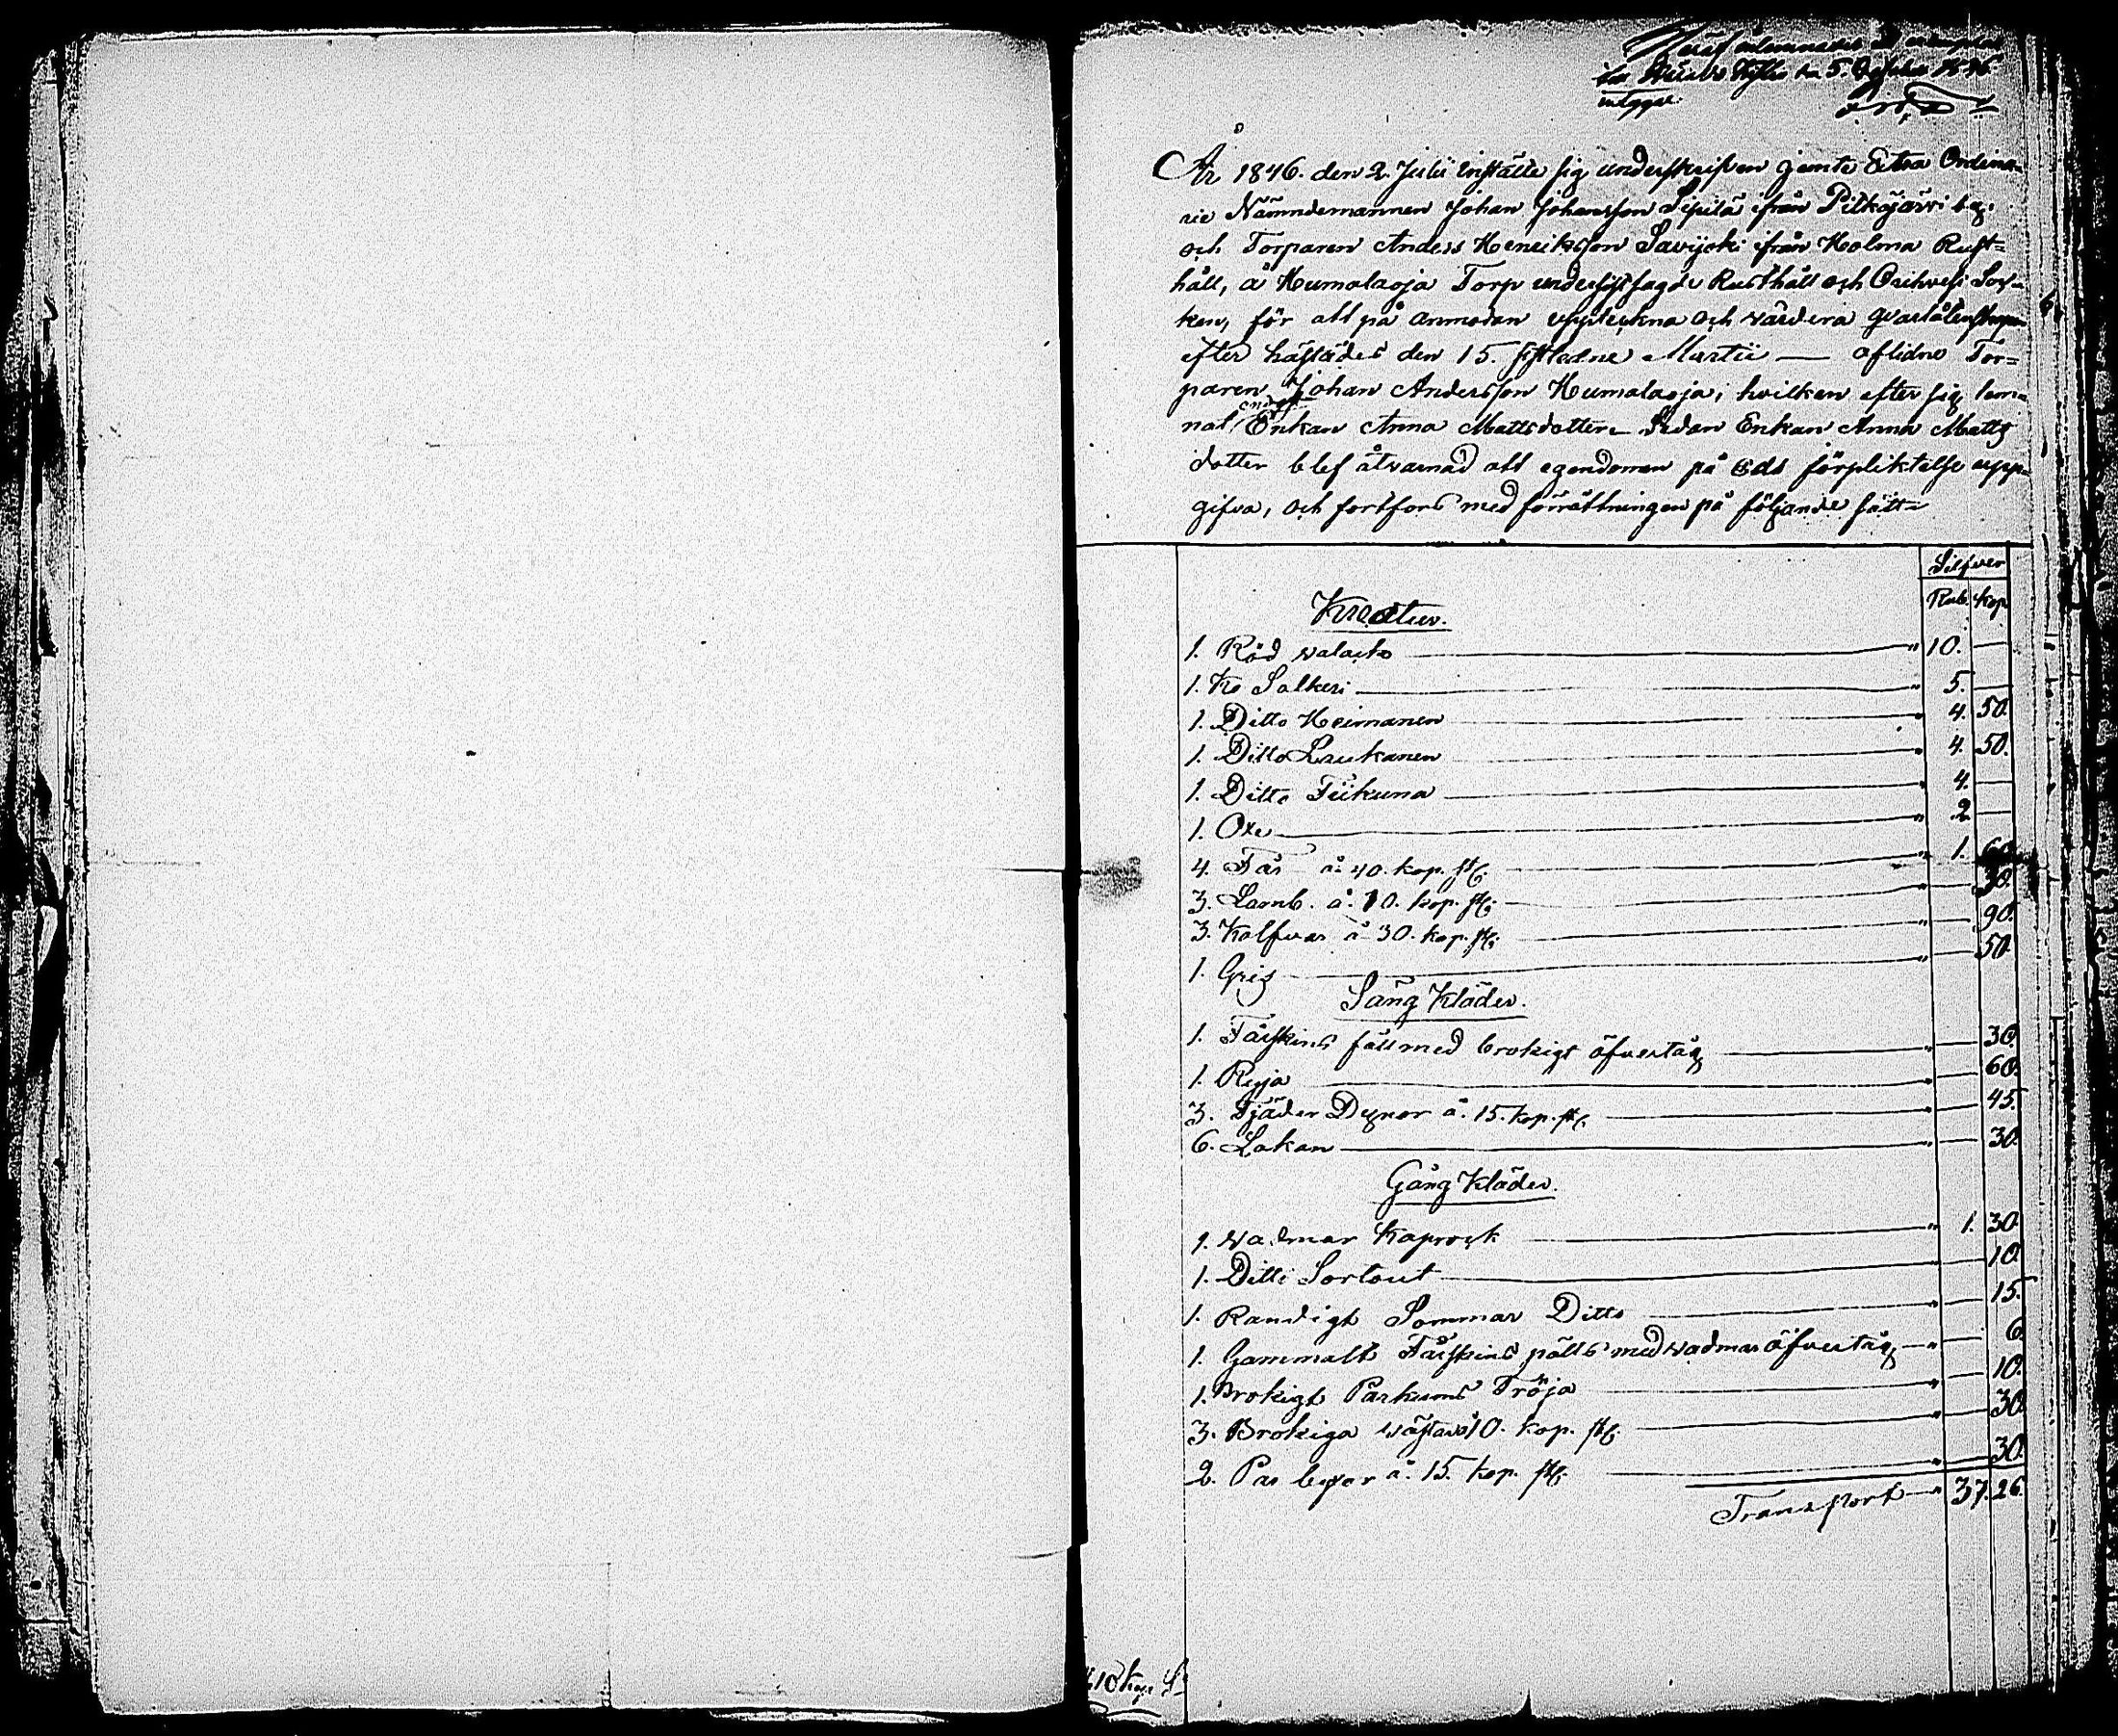 ett exemplar
den 5. 1846.
intygar.
År 1846. den 2. Julii Instälte sig underskrifven jemte Extra Ordina-
rie Nämndemannen Johan Johansson Sipilä ifrån Pitkäjärvi by,
och Torparen Anders Henriksson Savijoki ifrån Holma Rust-
håll, å Humalaoja Torp under sistsagde Rusthåll och Orihvesi Soc-
ken, för att på anmodan uppteckna och värdera qvarlåtenskapen
efter härstädes den 15. sistledne Martii — aflidne Tor-
paren Johan Andersson Humalaoja; hvilken efter sig lem-
nat Enkan Anna Mattsdotter. Sedan Enkan Anna Matts
dotter blef åtvarnad att egendomen på Eds förpliktelse upp-
gifva, och fortfors med förrättningen på följande sätt-
Silfver
Rub. Kop
Kreatur.
1. Röd valack " 10. —
1. Ko Salkeri " 5. —
1. Ditto Heimanen " 4. 50.
1. Ditto Laukanen " 4. 50.
1. Ditto Tiikuna " 4. —
1. Oxe " 2 —
4. Får å 40. kop. st. " 1. 60
3. Lamb. å. 10. kop. st. " — 30.
3. Kalfvar å 30. kop. st. " — 90.
1. Gris " — 50.
Säng Kläder.
1. Fårskins fäll med brokigt öfvertåg " — 30.
1. Ryja " — 60.
3. Fjäder Dynor å. 15. kop. st. " — 45.
6. Lakan " — 30.
Gång Kläder.
1. Vadmar Kaprock " 1. 30.
1. Ditto Sortout " — 10.
1. Randigt Sommar Ditto " — 15.
1. Gammalt Fårskins pälts med vadmar öfvertåg " — 6.
1. Brokigt Parkums Tröja " — 10.
3. Brokiga Västar å 10. kop. st. " — 30.
2. Par byxor å. 15. kop. st. " — 30.
Transport " 37. 26.
10 kop. S